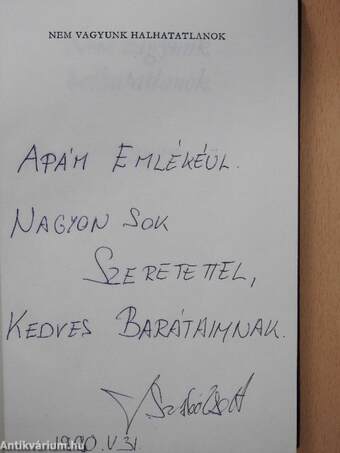 NEM VAGYUNK HALHATATLANOK
APÁM EMLÉKÉÜL.
NAGYON SOK
SZERETETTEL,
KEDVES BARÁTAIMNAK.
1990. V. 31.
Antikvárium.hu